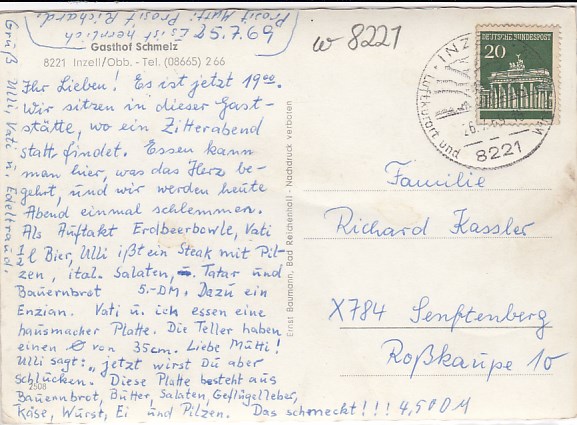 25.7.69 Es ist herrlich
Prosit Mutti Prosit Richard
Gasthof Schmelz
8221 Inzell/Obb. - Tel. (08665) 266
Ihr Lieben! Es ist jetzt 19⁰⁰.
Wir sitzen in dieser Gast-
stätte, wo ein Zitterabend
statt findet. Essen kann
man hier, was das Herz be-
gehrt, und wir werden heute
Abend einmal schlemmen.
Als Auftakt Erdbeerbowle, Vati
1 l Bier, Ulli ißt ein Steak mit Pil-
zen, ital. Salaten, Tatar und
Bauernbrot 5.-DM. Dazu ein
Enzian. Vati u. ich essen eine
hausmacher Platte. Die Teller haben
einen Ø von 35cm. Liebe Mutti!
Ulli sagt: „jetzt wirst Du aber
schlucken. Diese Platte besteht aus
Bauernbrot, Butter, Salaten, Geflügelleber,
Käse, Wurst, Ei und Pilzen. Das schmeckt!!! 4,50DM
2508
Gruß Ulli, Vati u. Edeltraud.
Ernst Baumann, Bad Reichenhall - Nachdruck verboten
w 8221
DEUTSCHE BUNDESPOST
20
INZELL
Luftkurort und
8221
Familie
Richard Kassler
X784 Senftenberg
Roßkaupe 10